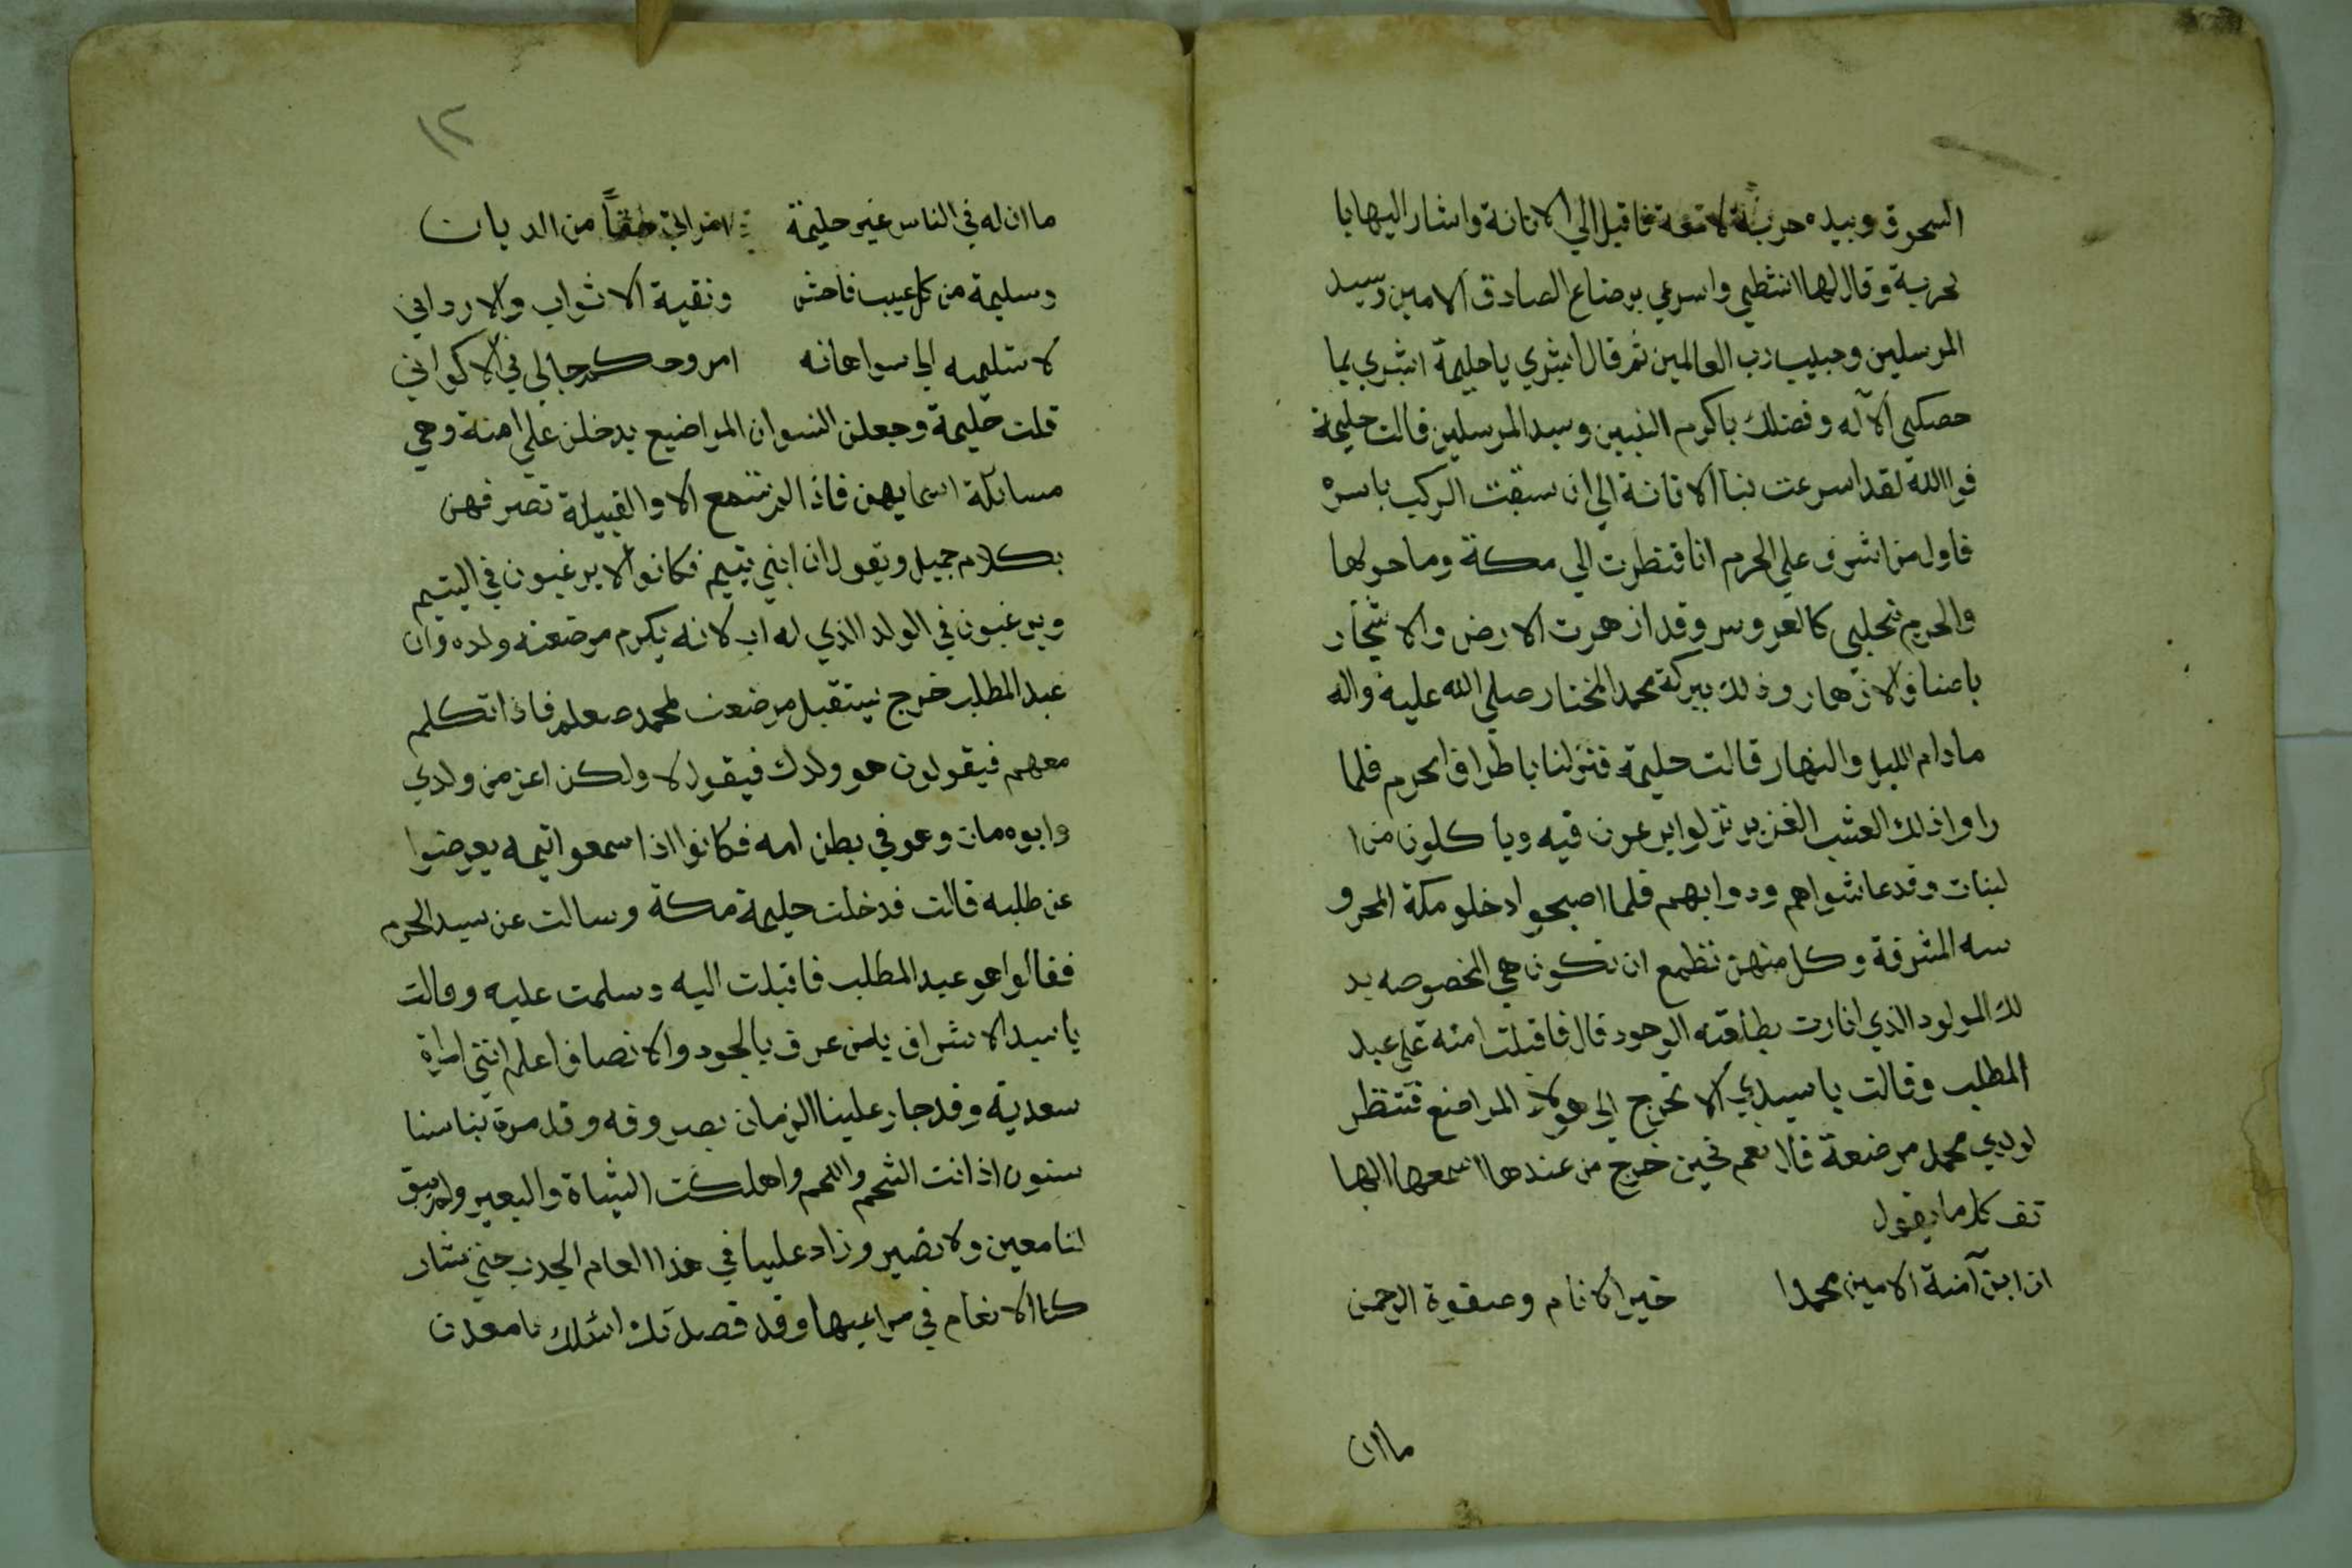 السحوق وبيده حربة لامعة فاقبل الي الاتانة واشار اليها با
لحربة وقال لها انشطي واسرعي برضاع الصادق الامين وسيد
المرسلين وحبيب رب العالمين ثم قال ابشري ياحليمة ابشري بما
خصكي الآله وفضلك باكرم النبيين وسيد المرسلين قالت حليمة
فوا الله لقد اسرعت بنا الاتانة الي ان سبقت الركب باسره
فاول من اشرف علي الحرم انا فنظرت الي مكة وما حولها
والحرم تجلي كالعروس وقد ازهرت الارض والاشجار
باصناف الازهار وذلك ببركة محمد المختار صلي الله عليه واله
مادام الليل والنهار قالت حليمة فنزلنا باطراف الحرم فلما
راوا ذلك العشب الغزير نزلوا يرعون فيه وياكلون من ا
لنبات وقد عاشوا هم ودوابهم فلما اصبحوا دخلو مكة المحرو
سه المشرفة وكل منهن تطمع ان تكون هي المخصوصه بد
لك المولود الذي انارت بطلعته الوجود قال فاقبلت امنه علي عبد
المطلب وقالت ياسيدي الا تخرج الي هولاء المراضع فتنظر
لولدي محمد مرضعة قال نعم فحين خرج من عندها اسمعها الها
تف كلاما يقول
ان ابن آمنة الامين محمدا خير الانام وصفوة الرحمن
ما ان
١٢
ما ان له في الناس غير حليمة من الديان
وسليمة من كل عيب فاحش ونقية الاثواب والارداني
لا تسليميه الي سواها انه امر وحكم جالي في الاكواني
قلت حليمة وجعلن النسوان المراضيع يدخلن علي امنة وهي
مسائلة اسمايهن فاذا لم تسمع الا والقبيلة تصرفهن
بكلام جميل وتقول ان ابني يتيم فكانوا لا يرغبون في اليتيم
ويرغبون في الولد الذي له اب لانه يكرم مرضعته ولده وان
عبد المطلب خرج يستقبل مرضعت لمحمد صعلم فاذا تكلم
معهم فيقولون هو ولدك فيقول لا ولكن اعز من ولدي
وابوه مات وهو في بطن امه فكانوا اذا سمعوا اتيمه يعرضوا
عن طلبه قالت فدخلت حليمة مكة وسالت عن سيد الحرم
فقالوا هو عبد المطلب فاقبلت اليه وسلمت عليه وقالت
ياسيد الاشراف يامن عرف بالجود والانصاف اعلم انني امراة
سعدية وقد جار علينا الزمان بصروفه وقد مرة بنا سنا
سنون اذابت الشحم واللحم واهلكت الشاة والبعير ولم يبق
لنا معين ولا نصير وزاد علينا في هذا العام الجدب حتي شار
كنا الانعام في مراعيها وقد قصدتك اسئلك يا معدن